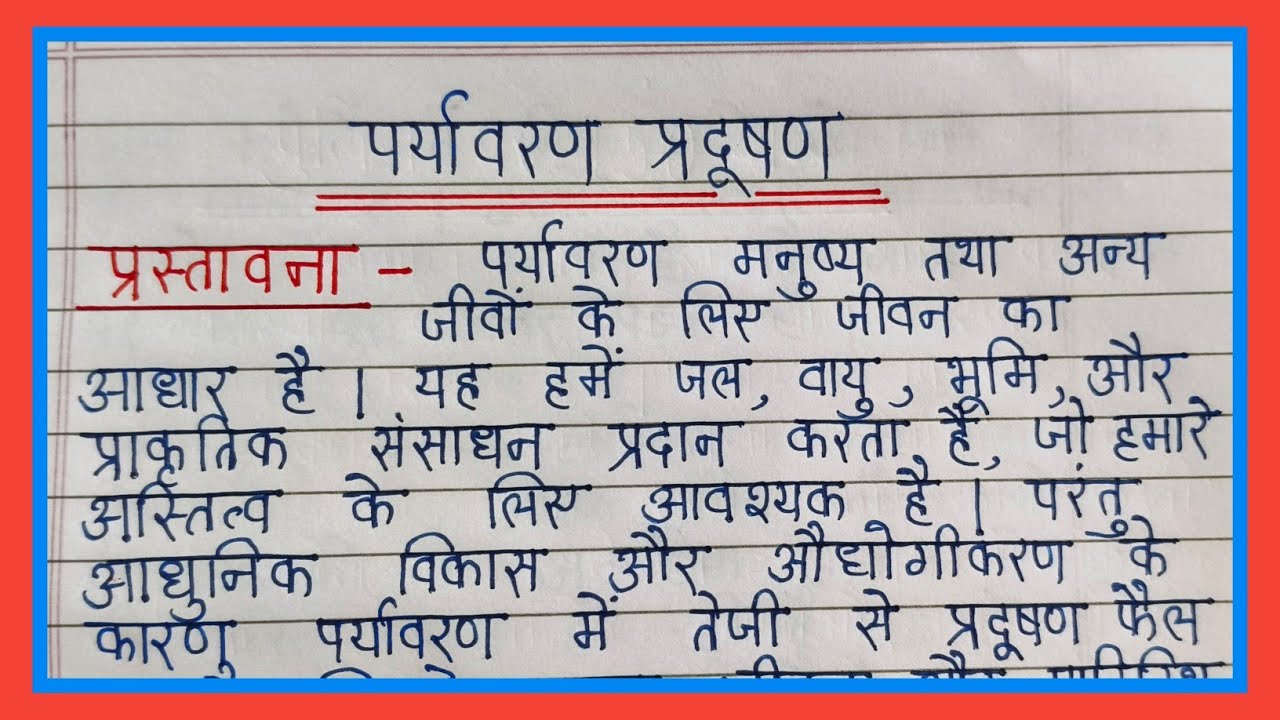 पर्यावरण प्रदूषण
प्रस्तावना - पर्यावरण मनुष्य तथा अन्य
जीवों के लिए जीवन का
आधार है। यह हमें जल, वायु, भूमि, और
प्राकृतिक संसाधन प्रदान करता है, जो हमारे
अस्तित्व के लिए आवश्यक है। परंतु
आधुनिक विकास और औधोगीकरण के
कारण पर्यावरण में तेजी से प्रदूषण फैल